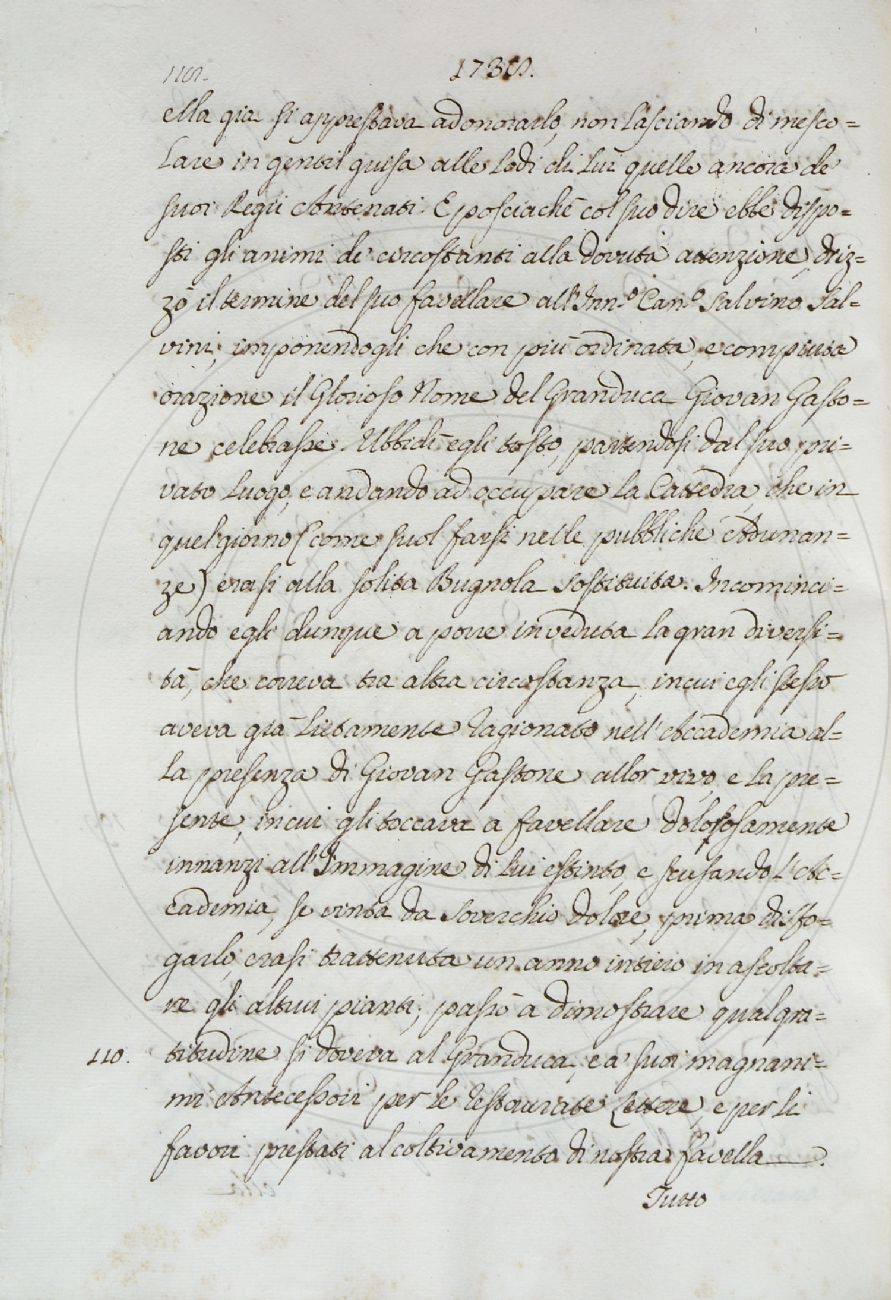 1738.
ella già si apprestava ad onorarlo, non lasciando di mesco=
lare in gentil guisa alle lodi di Lui quelle ancora de
suoi Regii Antenati. E posciachè col suo dire ebbe dispo=
sti gli animi de' circostanti alla dovuta attenzione, driz=
zò il termine del suo favellare all'Inn.º Can.º Salvino Sal=
vini, imponendogli che con più ordinata, e compiuta
orazione il Glorioso Nome del Granduca Giovan Gasto=
ne celebrasse. Ubbidì egli tosto, partendosi dal suo pri=
vato luogo, e andando ad occupare la Cattedra, che in
quel giorno (come suol farsi nelle pubbliche Adunan=
ze) erasi alla solita Bugnola sostituita. Incominci=
ando egli dunque a porre in veduta la gran diversi=
tà, che correva tra altra circostanza, in cui egli stesso
aveva già lietamente ragionato nell'Accademia al=
la presenza di Giovan Gastone allor vivo, e la pre=
sente, in cui gli toccava a favellare dolorosamente
innanzi all'Immagine di Lui estinto, e scusando l'Ac=
cademia, se vinta da soverchio dolore, prima di sfo=
garlo, erasi trattenuta un anno intiero in ascolta=
re gli altrui pianti, passò a dimostrare qual gra=
110. titudine si doveva al Granduca, e a' suoi magnani=
mi Antecessori per le restaurate Lettere, e per li
favori prestati al coltivamento di nostra favella.
Tutto